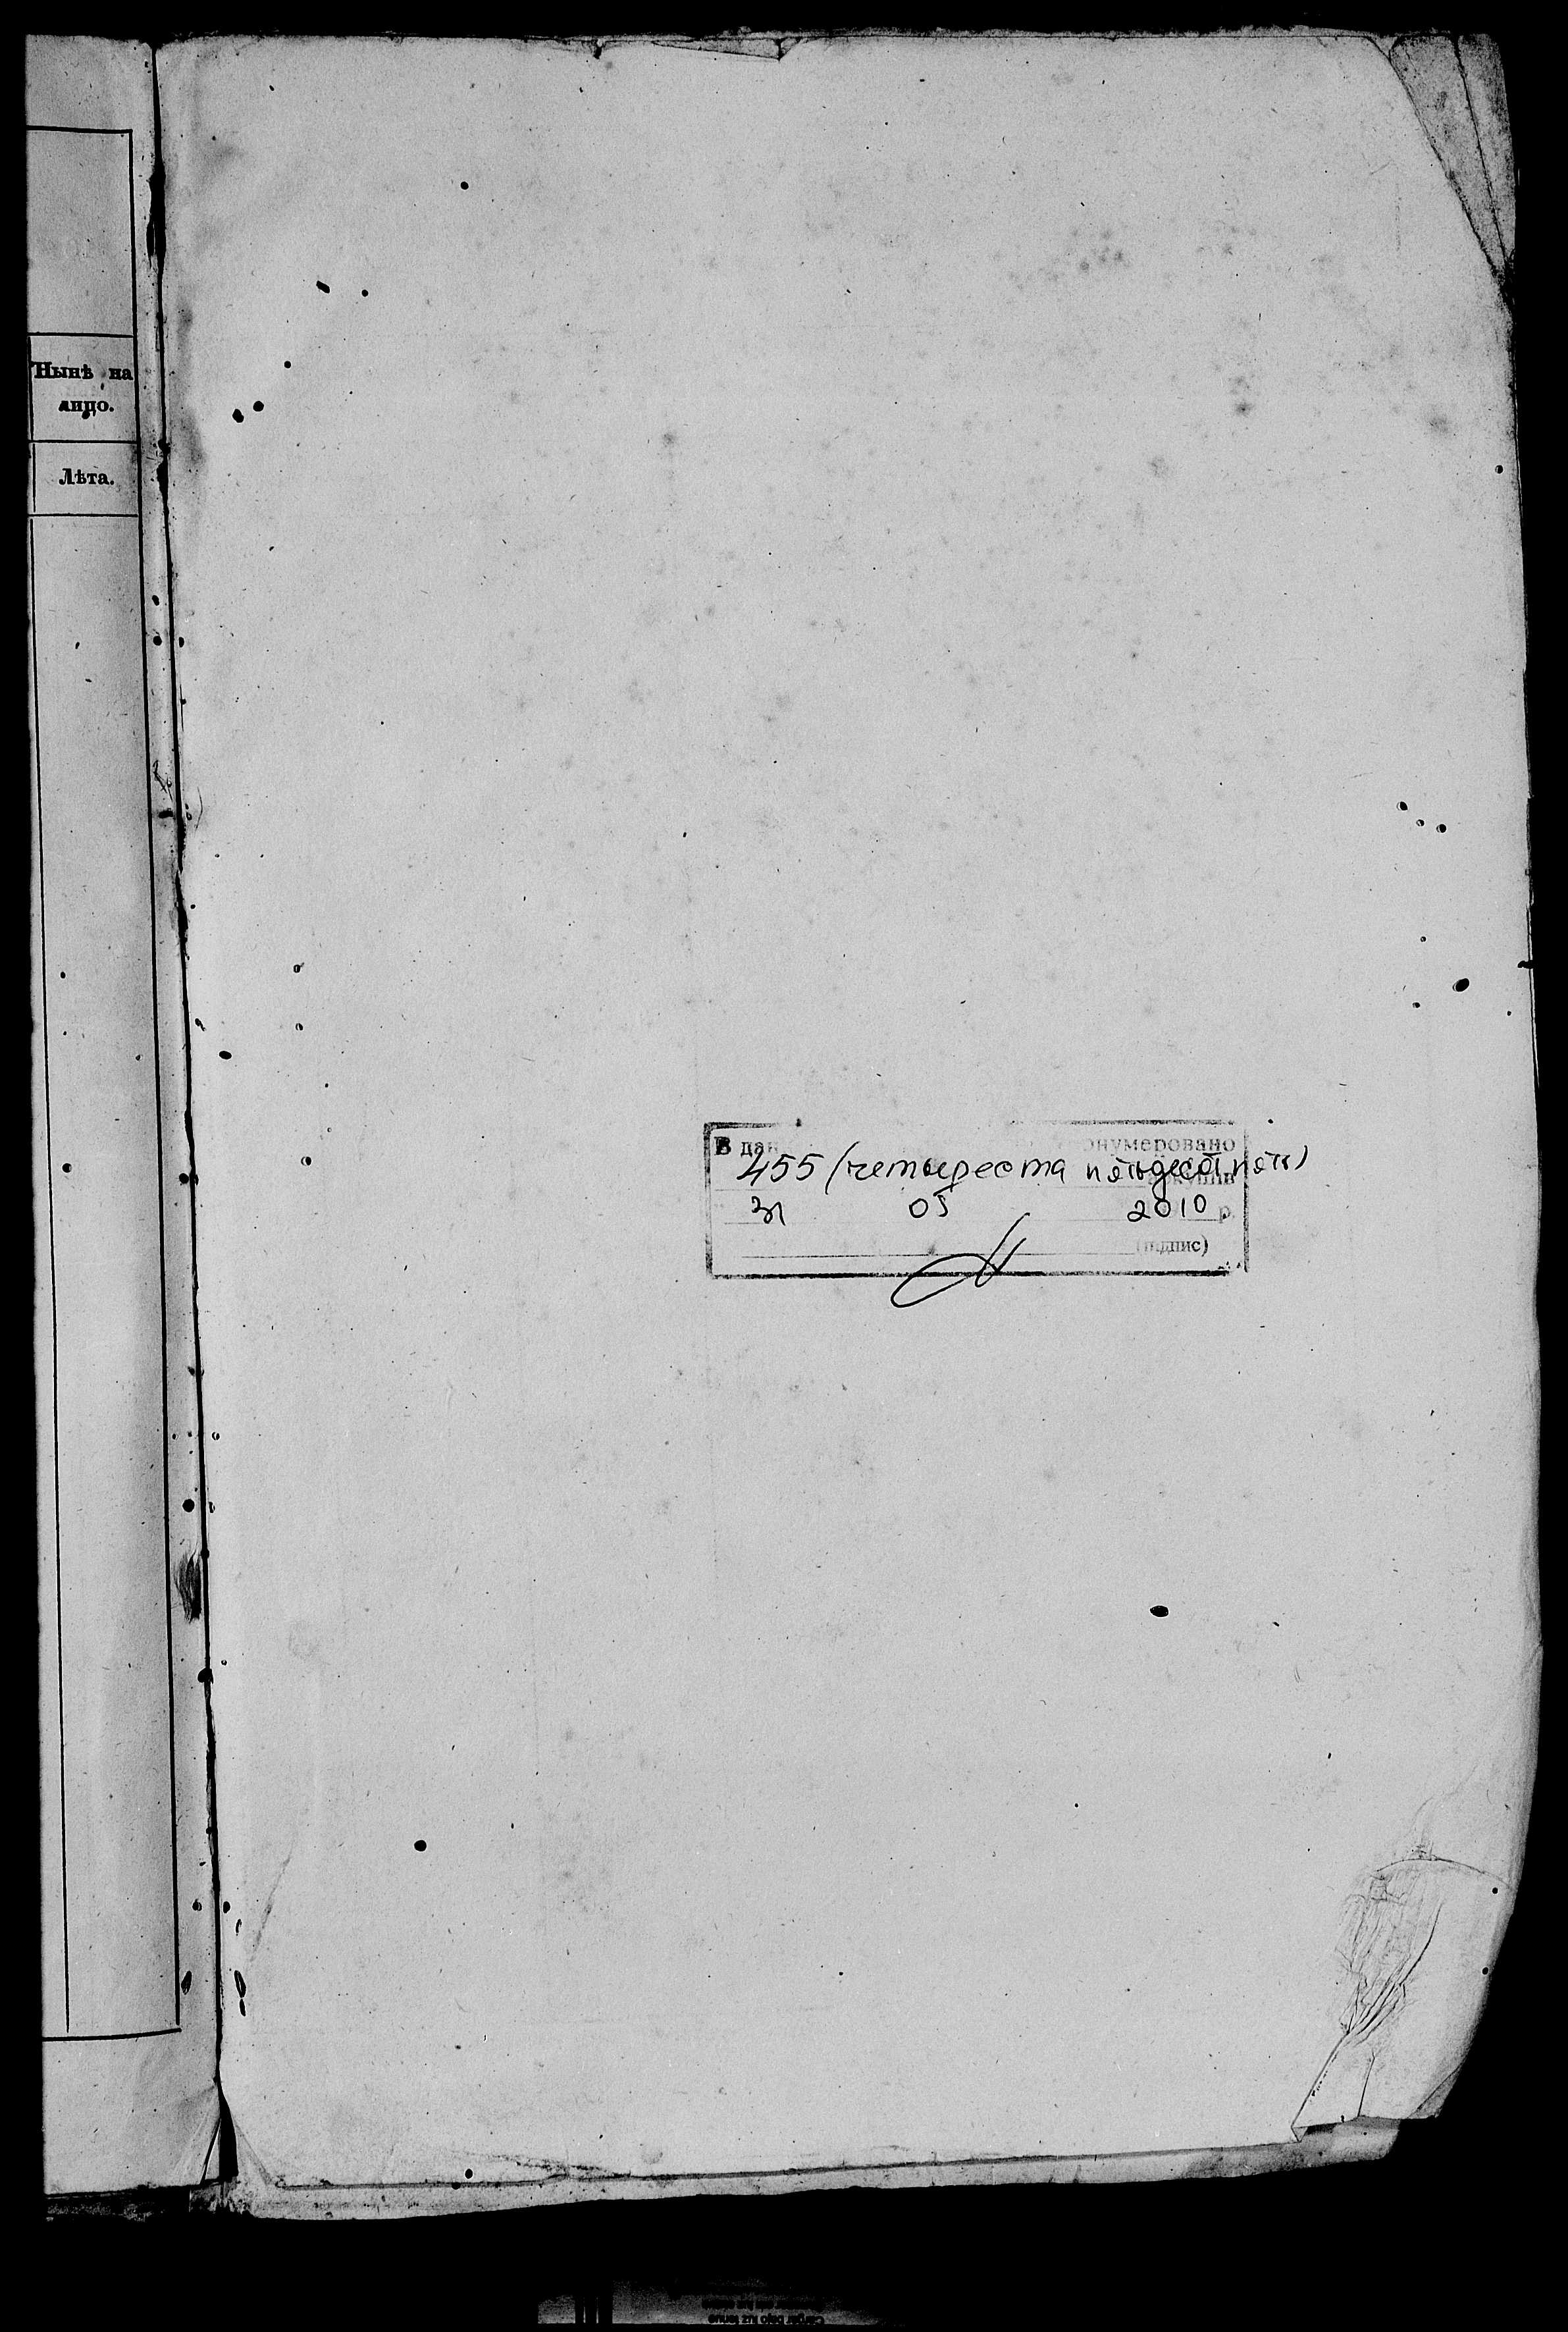 Нынѣ на
лицо.
Лѣта.
В дан онумеровано
455 (четыреста пятьдесят пять)
31 05 2010 р.
(підпис)